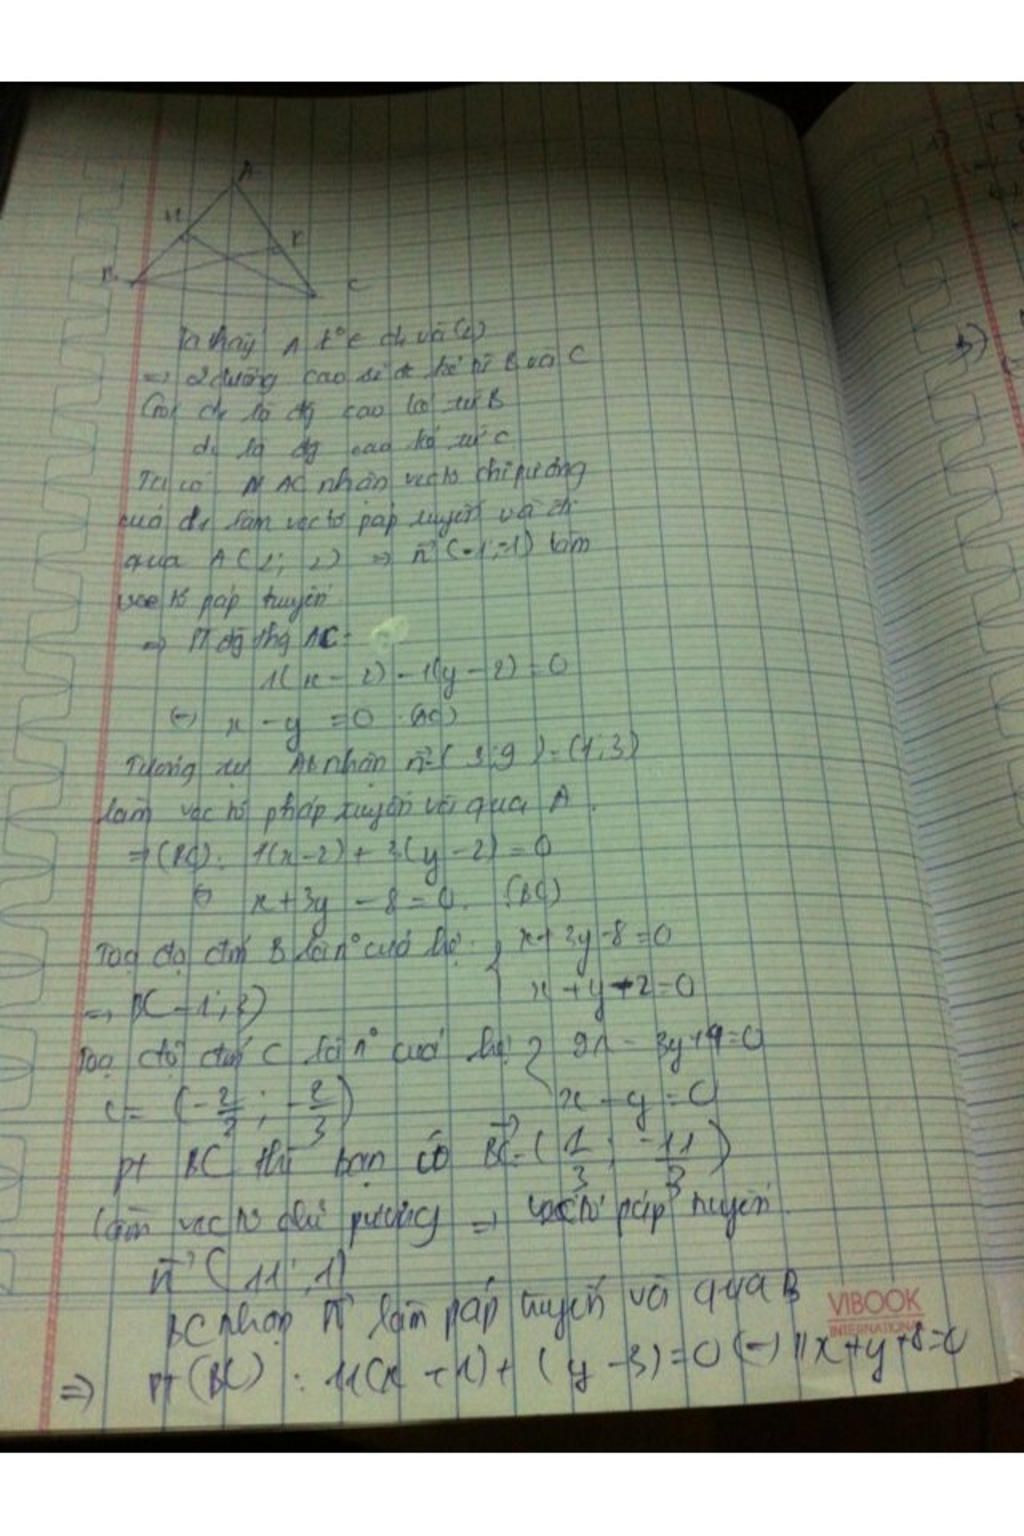 A
H
K
B
C
Ta thấy A
=> 2 đường cao sẽ đc kẻ từ B và C
Gọi d₁ là đg cao kẻ từ B
d₂ là đg cao kẻ từ C
Ta có AC nhận vectơ chỉ phương
của d₁ làm vectơ pháp tuyến và đi
qua A(2; 2) => n⃗ (-1;-1) làm
vectơ pháp tuyến
=> PT đg thg AC:
1(x-2)-1(y-2)=0
(-) x-y=0 (AC)
Tương tự AB nhận n⃗=( 3;9 )=(1;3)
làm vectơ pháp tuyến và qua A.
=>(BC): 1(x-2)+3(y-2)=0
x+3y-8=0. (BC)
Toạ độ điểm B là n° của hệ: x+3y-8=0
x+y-2=0
=> B(-1;3)
Toạ độ điểm C là n° của hệ: 9x-3y+4=0
x-y=0
C=(-2/3; -2/3)
pt BC thì bạn có BC⃗=(1/3; -11/3)
làm vectơ chỉ phương => vectơ pháp tuyến
n⃗ (11;1)
BC nhận n⃗ làm pháp tuyến và qua B
=> PT(BC): 11(x+1)+(y-3)=0 (-) 11x+y+8=0
VIBOOK
INTERNATIONAL
b)